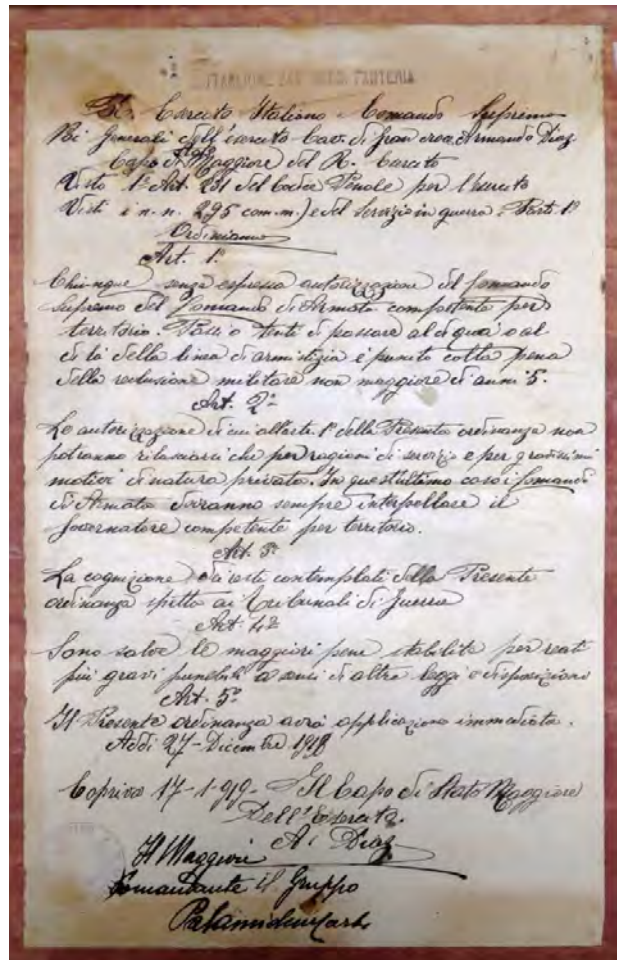 R. Esercito Italiano Comando Supremo
Noi Generali dell'esercito Cav. di Gran croce Armando Diaz
Capo di Stato Maggiore del R. Esercito
Visto l'Art. 251 del Codice Penale per l'esercito
Visti i n. n. 295 com. m.) e del Servizio in guerra. Parte 1ª
Ordiniamo
Art. 1º
Chiunque senza espressa autorizzazione del Comando
Supremo del Comando di Armata competente per
territorio. Passi o tenti di passare al di quà o al
di là della linea di armistizio è punito colla pena
della reclusione militare non maggiore di anni 5.
Art. 2º
Le autorizzazione di cui all'arte. 1º della Presente ordinanza non
potranno rilasciarsi che per ragioni di servizio e per gravissimi
motivi di natura privata. In quest'ultimo caso i Comandi
di Armata dovranno sempre interpellare il
Governatore competente per territorio.
Art. 3º
La cognizione dei reati contemplati dalla Presente
ordinanza spetta ai Tribunali di Guerra
Art. 4º
Sono salve le maggiori pene stabilite per reati
più gravi punibili a sensi di altre leggi o disposizioni
Art. 5º
Il Presente ordinanza avrà applicazione immediata.
Addì 27 - Dicembre 1918
Capriva 17-1-919 - Il Capo di Stato Maggiore
Dell'Esercito.
A. Diaz
Il Maggiore
Comandante il Gruppo